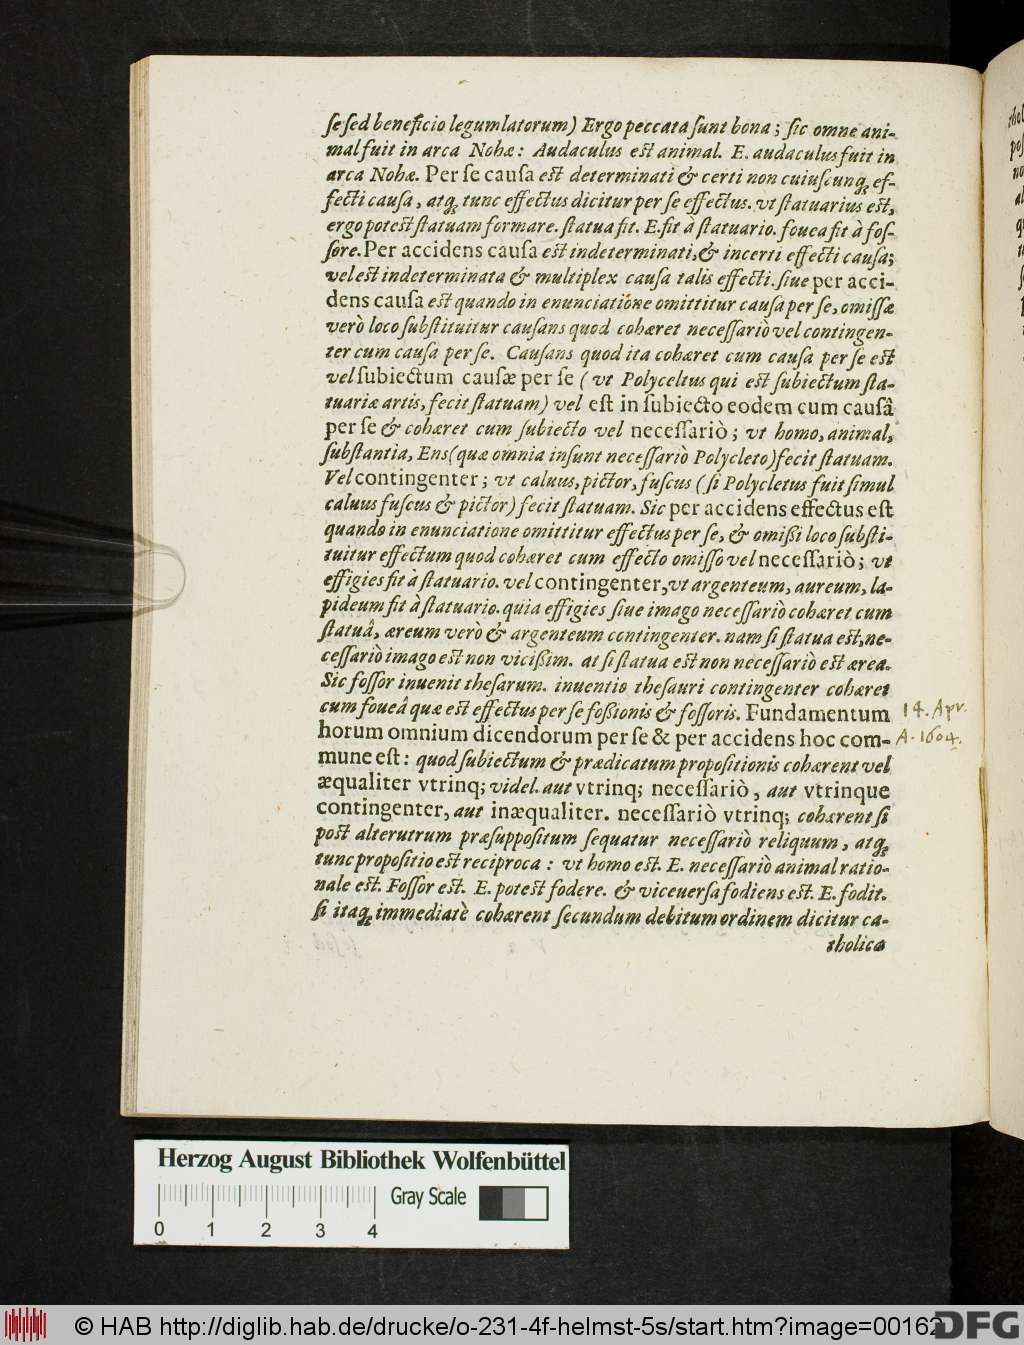 ſe ſed beneficio legumlatorum) Ergo peccata ſunt bona; ſic omne ani-
mal fuit in arca Nohæ: Audaculus est animal. E. audaculus fuit in
arca Nohæ. Per ſe cauſa est determinati & certi non cuiuſcunq; ef-
fecti cauſa, atq; tunc effectus dicitur per ſe effectus. vt ſtatuarius est,
ergo potest ſtatuam formare. ſtatua fit. E. fit à ſtatuario. fouea fit à foſ-
ſore. Per accidens cauſa est indeterminati, & incerti effecti cauſa;
vel est indeterminata & multiplex cauſa talis effecti. ſiue per acci-
dens cauſa est quando in enunciatione omittitur cauſa per ſe, omiſſæ
verò loco ſubſtituitur cauſans quod cohæret neceſſariò vel contingen-
ter cum cauſa per ſe. Cauſans quod ita cohæret cum cauſa per ſe est
vel ſubiectum cauſæ per ſe (vt Polyceltus qui est ſubiectum ſta-
tuariæ artis, fecit ſtatuam) vel eſt in ſubiecto eodem cum cauſâ
per ſe & cohæret cum ſubiecto vel neceſſariò; vt homo, animal,
ſubſtantia, Ens (quæ omnia inſunt neceſſariò Polycleto) fecit ſtatuam.
Vel contingenter; vt caluus, pictor, fuſcus (ſi Polycletus fuit ſimul
caluus fuſcus & pictor) fecit ſtatuam. Sic per accidens effectus eſt
quando in enunciatione omittitur effectus per ſe, & omißi loco ſubſti-
tuitur effectum quod cohæret cum effecto omiſſo vel neceſſariò; vt
effigies fit à ſtatuario. vel contingenter, vt argenteum, aureum, la-
pideum fit à ſtatuario. quia effigies ſiue imago neceſſariò cohæret cum
ſtatuâ, æreum verò & argenteum contingenter. nam ſi ſtatua est, ne-
ceſſariò imago est non vicißim. at ſi ſtatua est non neceſſariò est ærea.
Sic foſſor inuenit theſarum. inuentio theſauri contingenter cohæret
cum foueâ quæ est effectus per ſe foßionis & foſſoris. Fundamentum
horum omnium dicendorum per ſe & per accidens hoc com-
mune eſt: quod ſubiectum & prædicatum propoſitionis cohærent vel
æqualiter vtrinq; videl. aut vtrinq; neceſſariò, aut vtrinque
contingenter, aut inæqualiter. neceſſariò vtrinq; cohærent ſi
post alterutrum præſuppoſitum ſequatur neceſſariò reliquum, atq;
tunc propoſitio est reciproca: vt homo est. E. neceſſariò animal ratio-
nale est. Foſſor est. E. potest fodere. & viceuerſa fodiens est. E. fodit.
ſi itaq; immediatè cohærent ſecundum debitum ordinem dicitur ca-
tholica
14. Apr.
A. 1604.
Herzog August Bibliothek Wolfenbüttel
Gray Scale
0 1 2 3 4
© HAB http://diglib.hab.de/drucke/o-231-4f-helmst-5s/start.htm?image=00162
DFG